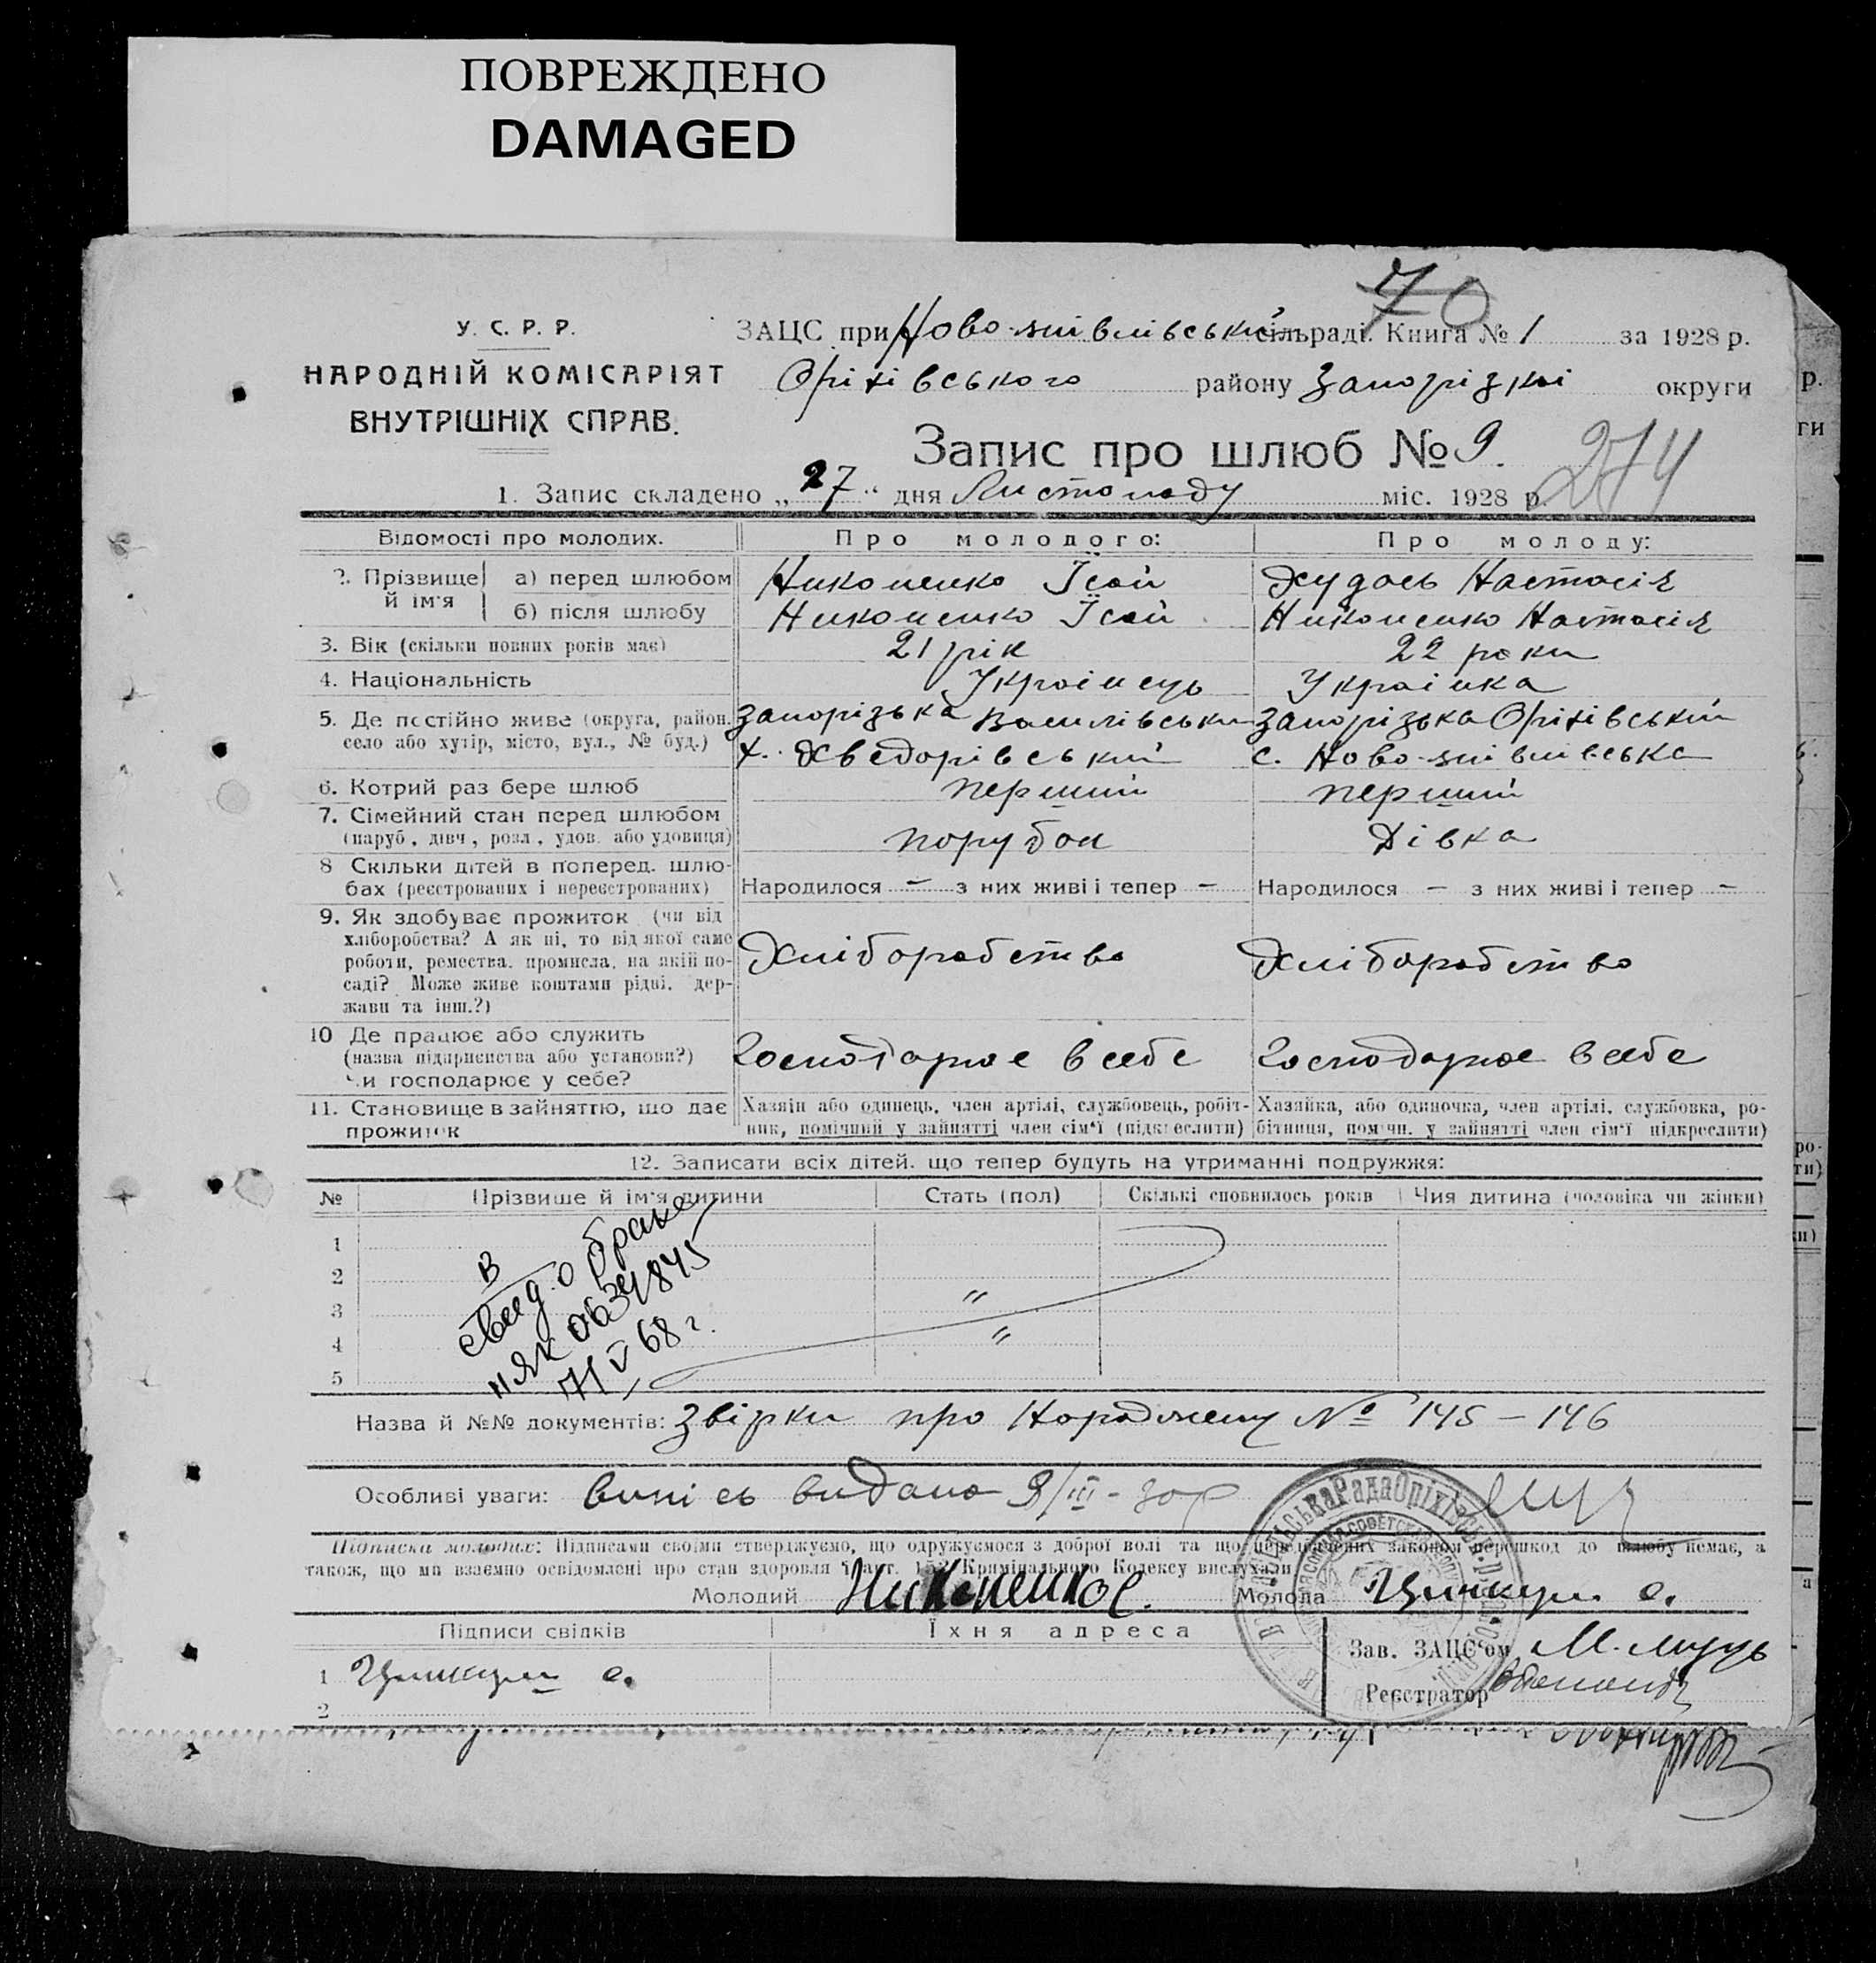 ПОВРЕЖДЕНО
DAMAGED
70
У. С. Р. Р.
НАРОДНІЙ КОМІСАРІЯТ
ВНУТРІШНІХ СПРАВ.
ЗАЦС при Ново-_ сільраді. Книга № 1 за 1928 р.
Оріхівського району Запорізкоі округи
Запис про шлюб № 9.
274
1. Запис складено „27“ дня Листопаду міс. 1928 р.
Відомості про молодих. Про молодого: Про молоду:
2. Прізвище й ім'я а) перед шлюбом Никоненко Ісай Худась Настасія
б) після шлюбу Никоненко Ісай Никоненко Настасія
3. Вік (скільки повних років має) 21 рік 22 роки
4. Національність Украінець Украінка
5. Де постійно живе (округа, район, Запорізька Василівськи Запорізька Оріхівський
село або хутір, місто, вул., № буд.) х. Хведорівський с. Ново-
6. Котрий раз бере шлюб перший перший
7. Сімейний стан перед шлюбом
(паруб., дівч., розл., удов. або удовиця) порубок Дівка
8 Скільки дітей в поперед. шлю-
бах (реєстрованих і нереєстрованих) Народилося – з них живі і тепер – Народилося – з них живі і тепер –
9. Як здобуває прожиток (чи від
хліборобства? А як ні, то від якої саме
роботи, ремества, промисла, на якій по-
саді? Може живе коштами рідні, дер-
жави та інш.?)
Хліборобство Хліборобство
10 Де працює або служить
(назва підприємства або установи?)
Чи господарює у себе?
Господарює в себе Господарює в себе
11. Становище в зайняттю, що дає
прожиток
Хазяїн або одинець, член артілі, службовець, робіт-
ник, помічний у зайнятті член сім'ї (підкреслити)
Хазяйка, або одиночка, член артілі, службовка, ро-
бітниця, помічн. у зайнятті член сім'ї підкреслити)
12. Записати всіх дітей, що тепер будуть на утриманні подружжя:
№ Прізвище й ім'я дитини Стать (пол) Скількі сповнилось років Чия дитина (чоловіка чи жінки)
1
2
3 "
4 "
5
В
свид. о браке
068 г.
Назва й №№ документів: Звірки про Народжену № 145 – 146
Особливі уваги: Випісь видано 9/III-30р
Підписка молодих: Підписами своїми стверджуємо, що одружуємося з доброї волі та що передбачених законом перешкод до шлюбу немає, а
також, що ми взаємно освідомлені про стан здоровля й арт. Кримінального Кодексу вислухали
Молодий Никоненко Є. Молода
Підписи свідків Їхня адреса
Зав. ЗАЦС'ом М.
1
2
Реєстратор